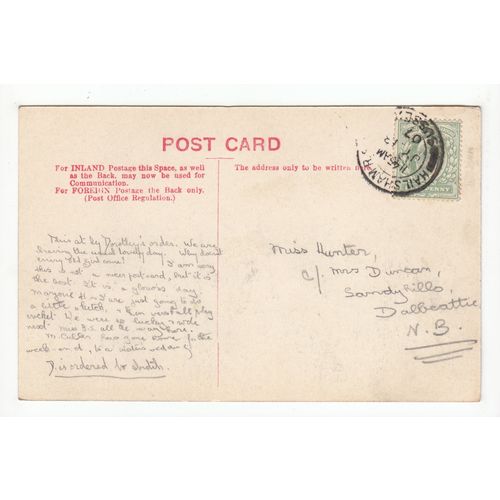 POST CARD
For INLAND Postage this Space, as well
as the Back, may now be used for
Communication.
For FOREIGN Postage the Back only.
(Post Office Regulation.)
The address only to be written
This is by Dudley's order. We are
having the usual lovely day. Why doesn't
I am sorry
this is not a nicer postcard, but it is
the best. It is a glorious day.
are just going to do
a little sketch, & then we shall play
cricket. We were so lucky & rode
next Miss all the way here.
have gone home for the
week-end, to a
D. is ordered to
Miss Hunter,
c/o Mrs Duncan,
Sandyhills,
Dalbeattie,
N.B.
HAILSHAM R.S.O.
SUSSEX
07
PENNY